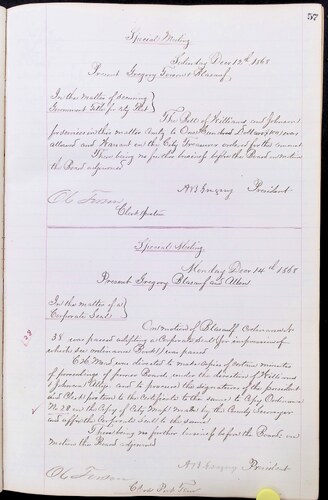 57
Special Meeting
Saturday Decr 12th 1868
Present Gregory
In the matter of
Government Title for City
The Bill of Williams and Johnson
services in this matter Amtg to One Hundred Dollars was
allowed and Warrant on the City Treasurer ordered for the amount
There being no further business before the Board on motion
the Board adjourned
President
Clerk
Special Meeting
Monday Decr 14th 1868
Present Gregory and Allen
In the matter of a
Corporate Seal
On motion of Ordinance No
38 was passed adopting a Corporate Seal (for impression of
which see ordinance Book) was passed
was directed to make copies of certain minutes
of proceedings of former Boards under the direction of Williams
& Johnson and to procure the signatures of the president
and Clerk to the Certificates to the same to Copy Ordinance
No 38 and the Copy of City Map made by the County Surveyor
and affix the Corporate Seal to the same
There being no further business before the Board on
motion the Board adjourned
President
Clerk Pro Tem